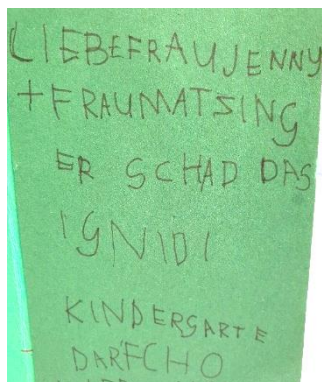 LIEBEFRAUJENNY
+FRAUMATSING
ER SCHAD DAS
IGNIDI
KINDERGARTE
DARFCHO